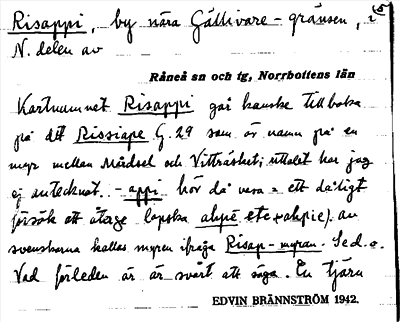 Risappi, by nära Gällivare-gränsen, i (5
N. delen av
Råneå sn och tg, Norrbottens län
Kartnamnet Risappi går kanske tillbaka
på det Rissiape G. 29 som är namn på en
myr mellan Mårdsel och Vitträsket; uttalet har jag
ej antecknat. - appi bör då vara = ett dåligt
försök att återge lapska ahpe etc. av
svenskarna kallas myren ifråga Risap-myran. Se d. o.
Vad förleden är är svårt att säga. En tjärn
EDVIN BRÄNNSTRÖM 1942.